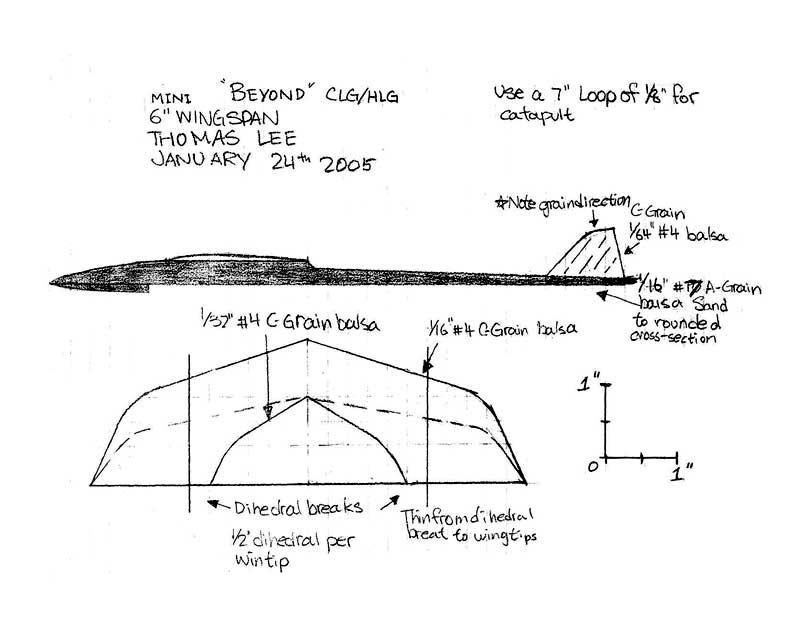 MINI "BEYOND" CLG/HLG
6" WINGSPAN
THOMAS LEE
JANUARY 24th 2005
Use a 7" Loop of 1/8" for
catapult
*Note graindirection
C-Grain
1/64" #4 balsa
1/16" #7 A-Grain
balsa Sand
to rounded
cross-section
1/32" #4 C-Grain balsa
1/16" #4 C-Grain balsa
1"
0
1"
Dihedral breaks
1/2" dihedral per
wintip
Thin from dihedral
breat to wingtips